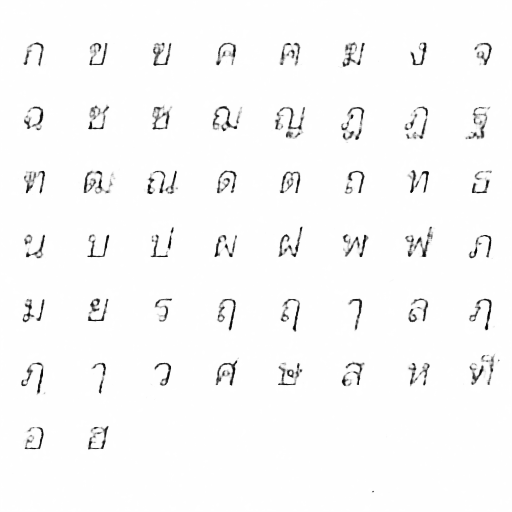 ก ข ฃ ค ฅ ฆ ง จ
ฉ ช ซ ฌ ญ ฎ ฏ ฐ
ฑ ฒ ณ ด ต ถ ท ธ
น บ ป ผ ฝ พ ฟ ภ
ม ย ร ฤ ฤ ๅ ล ฦ
ฦ ๅ ว ศ ษ ส ห
อ ฮ